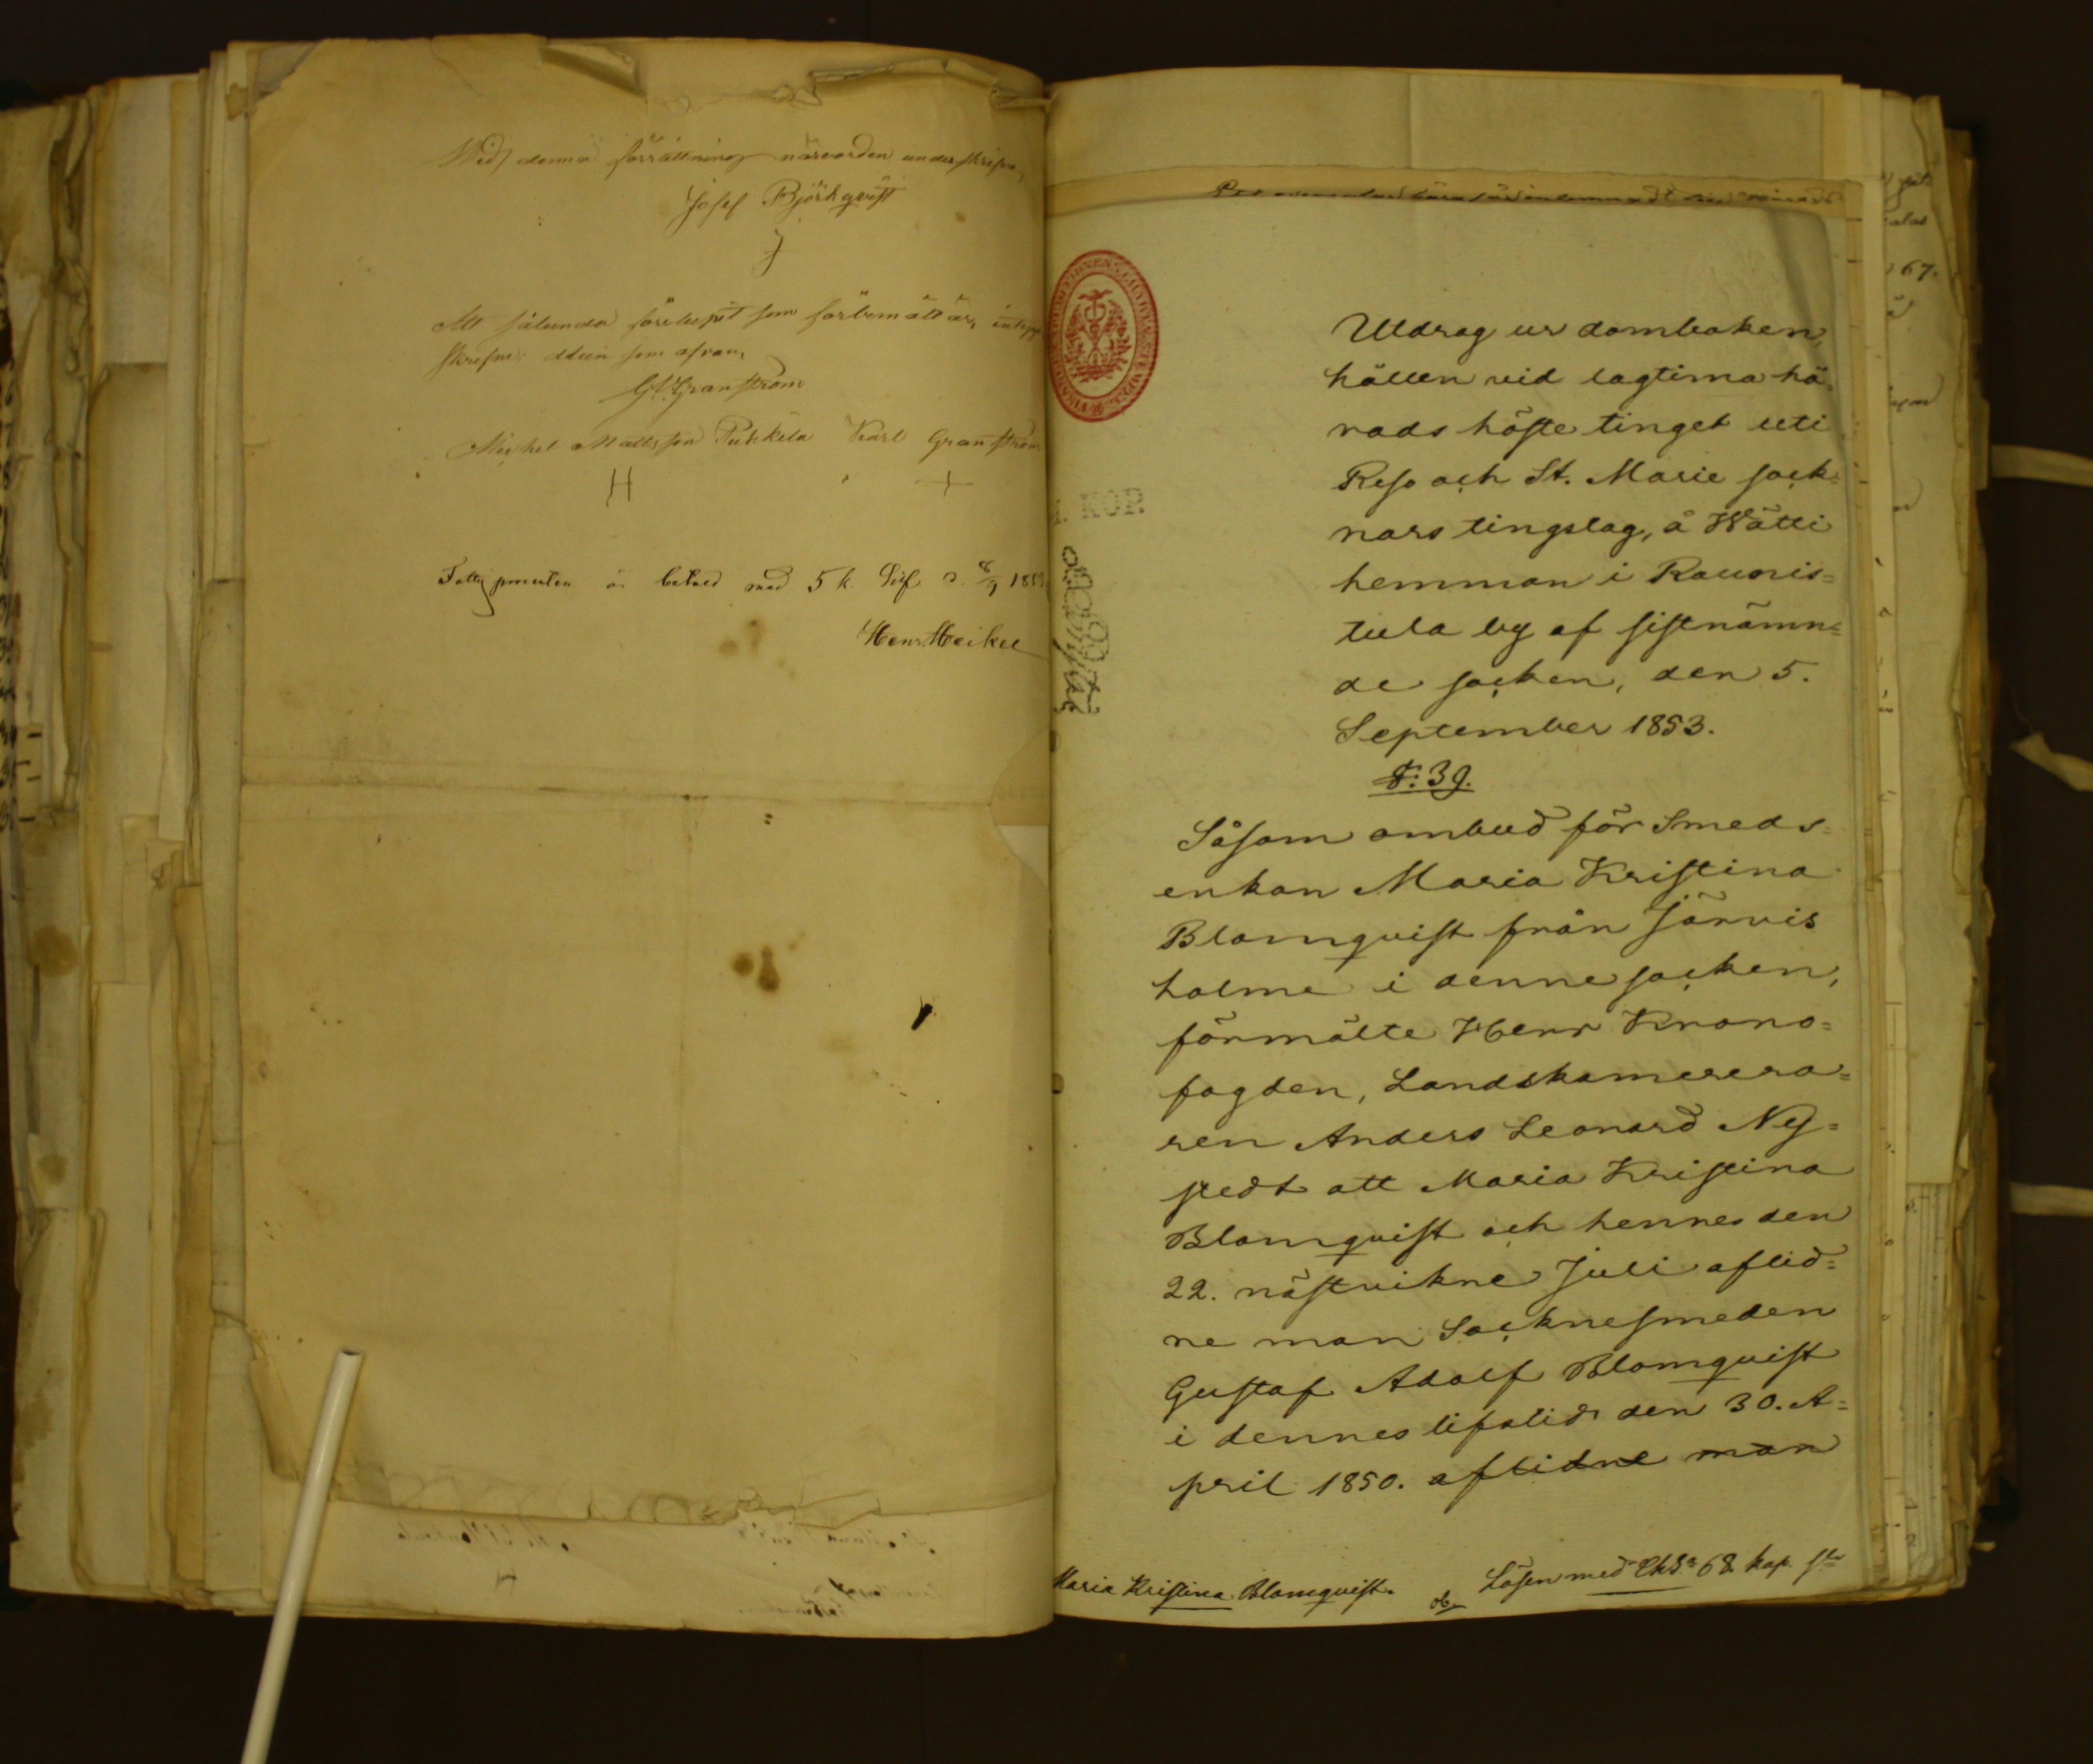 Wid denna förrättning närvarden underskrifva,
Josef Björkqvist
Att sålunda förelupit som förbemält är, intyga
G. Granström
Michel Mattsson Puhkila Karl Granström
H +
är betald med 5 k. Silf. d. 8/9 1853
Henr. Heikel
Utdrag ur domboken,
hållen vid lagtima hä-
rads höste tinget uti
Reso och St. Marie sock-
nars tingslag, å Wätti
hemman i Raunis=
tula by af sistnämn=
de socken, den 5.
September 1853.
§: 39.
Såsom ombud för Smeds=
enkan Maria Kristina
Blomqvist från Järvis
holme i denne socken,
förmälte Herr Krono=
fogden, Landskamerera=
ren Anders Leonard Ny=
stedt att Maria Kristina
Blomqvist och hennes den
22. nästvikne Juli aflid=
ne man Socknesmeden
Gustaf Adolf Blomqvist
i dennes lifstid den 30. A=
pril 1850. aflidne man
Maria Kristina Blomqvist.
Lösen med 68. kop. Sr